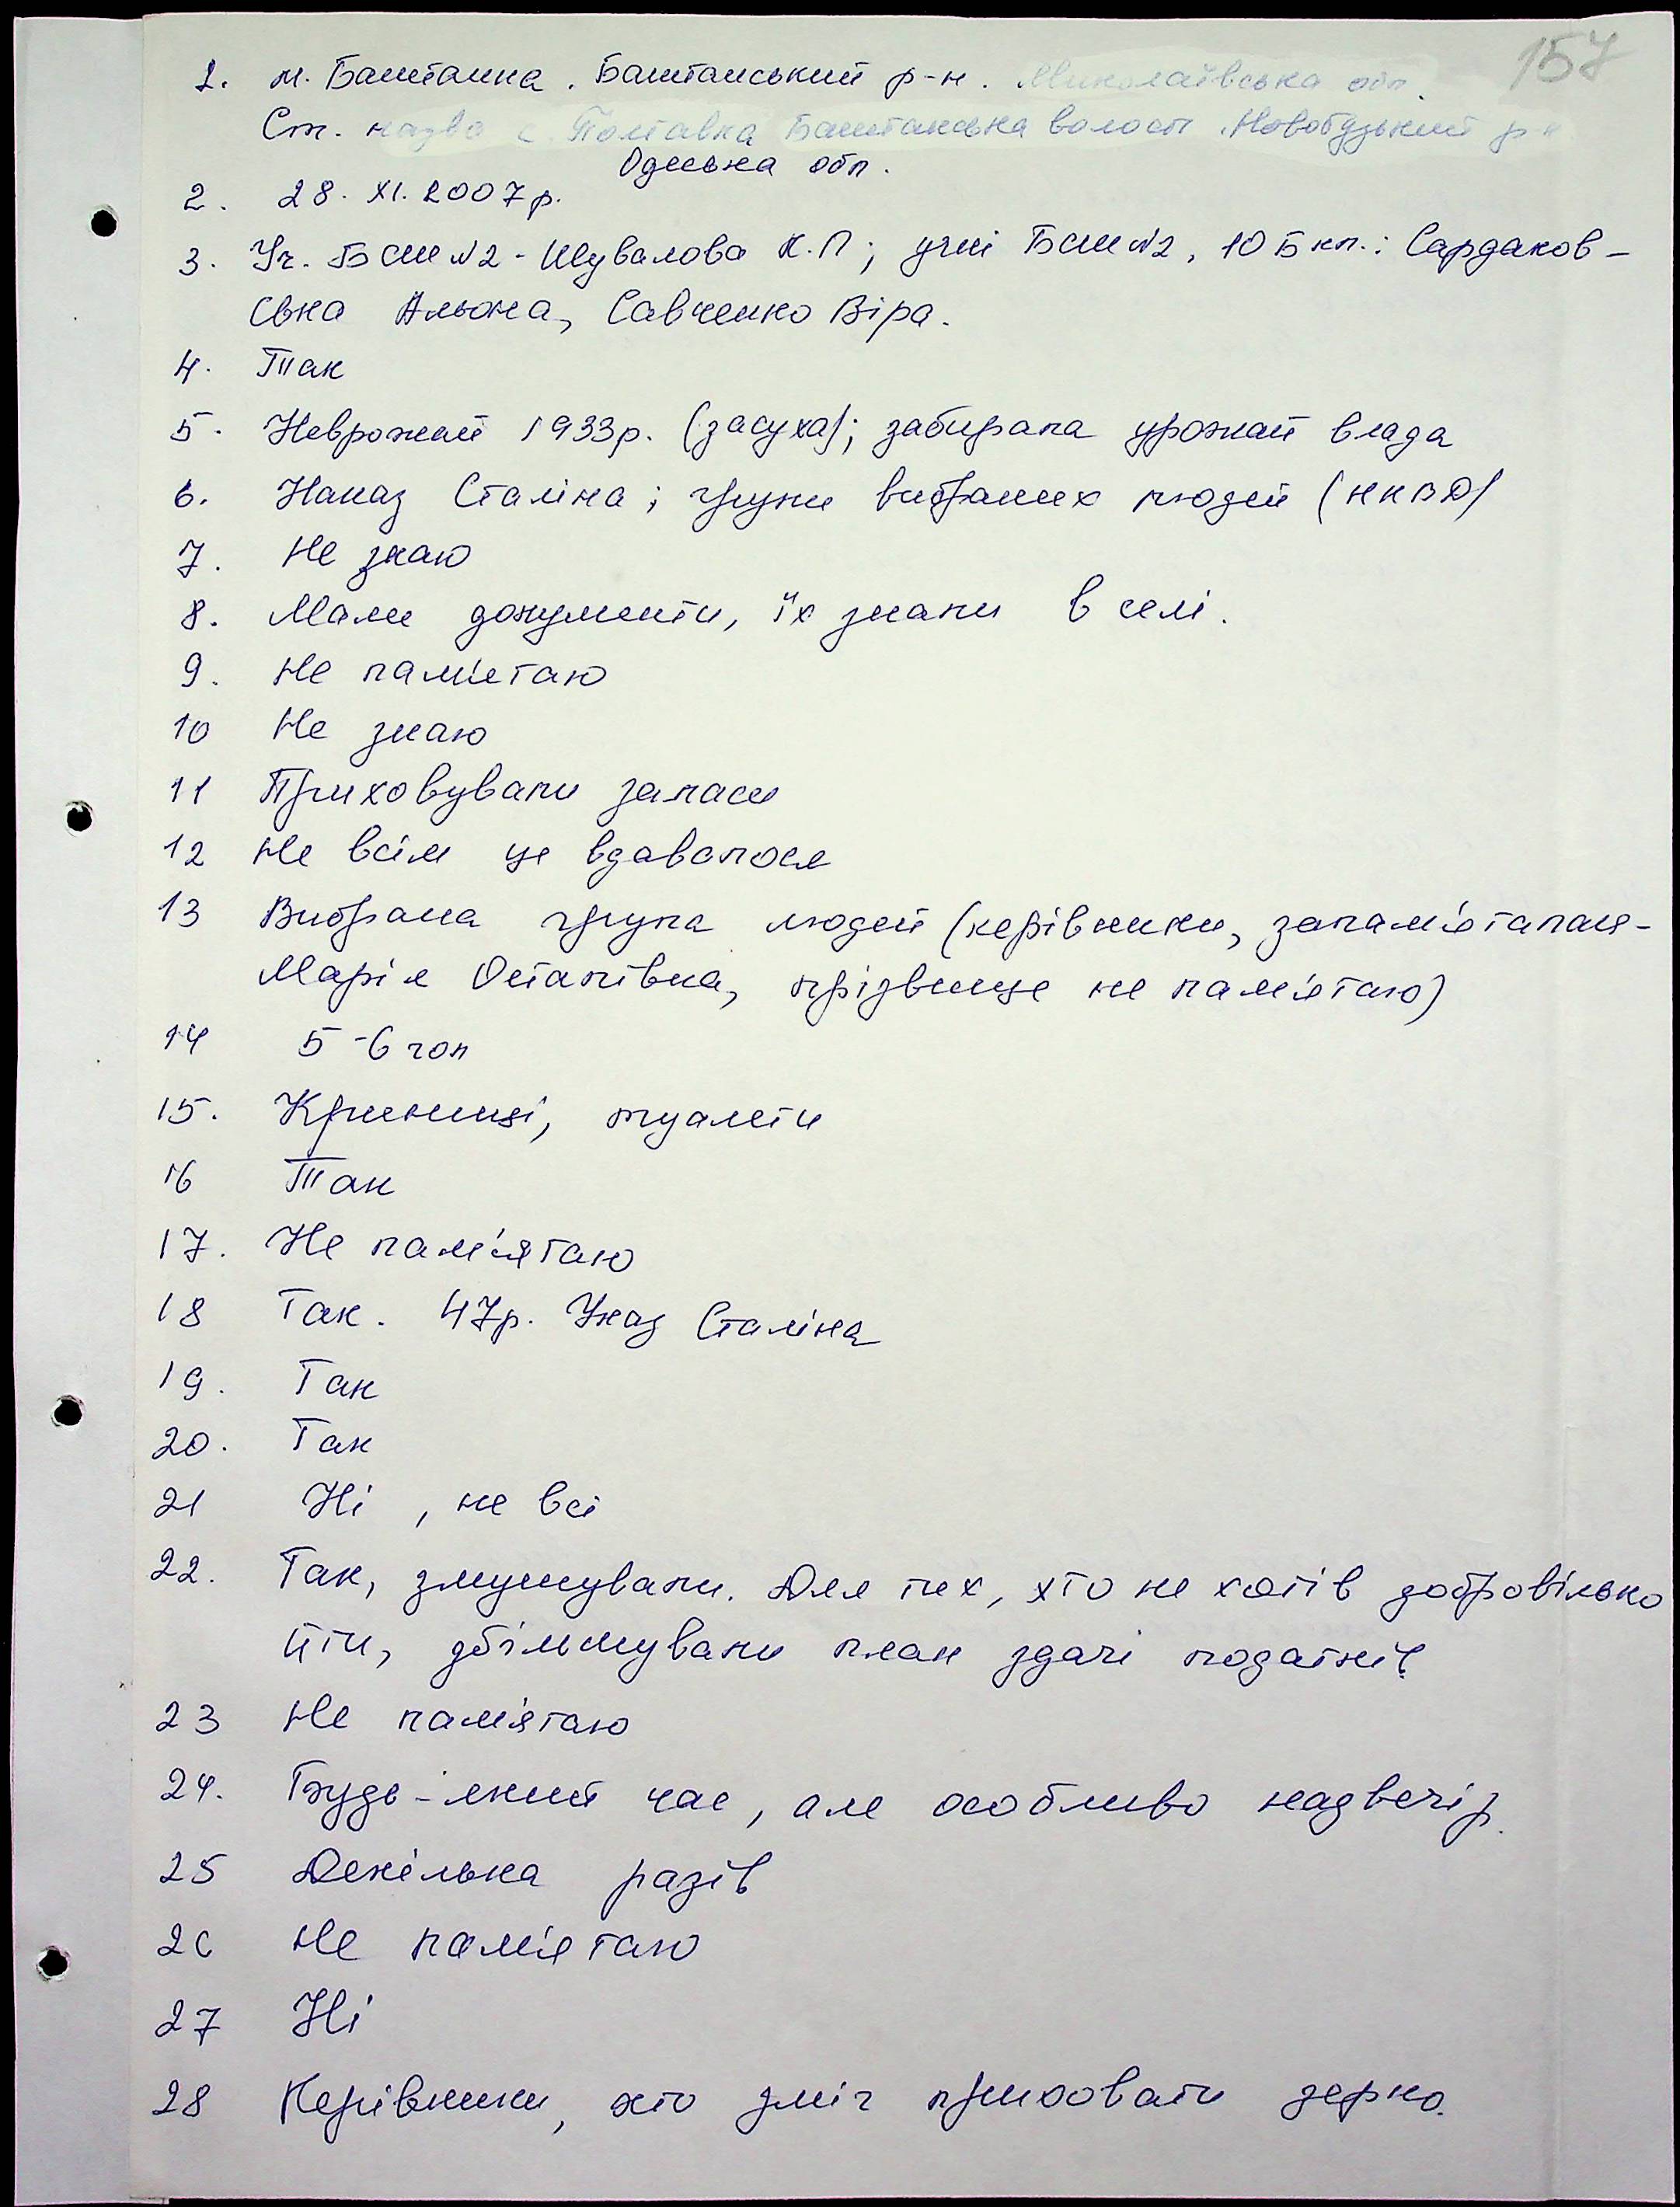 157
1. м. Баштанка. Баштанський р-н. Миколаївська обл.
Ст. назва с. Полтавка Баштанська волость Новобузький р-н
Одеська обл.
2. 28. XI. 2007р.
3. Уч. БСШ №2 - Шувалова К.П; учні БСШ №2, 10 Б кл.: Сардаков-
ська Альона, Савченко Віра.
4. Так
5. Неврожай 1933р. (засуха); забирала урожай влада
6. Наказ Сталіна; групи вибраних людей (НКВД)
7. Не знаю
8. Мали документи, їх знали в селі.
9. Не пам'ятаю
10 Не знаю
11 Приховували запаси
12 Не всім це вдавалося
13 Вибрана група людей (керівники, запам'яталася-
Марія Остапівна, прізвище не пам'ятаю)
14 5-6 чол
15. Криниці, туалети
16 Так
17. Не пам'ятаю
18 Так. 47р. Указ Сталіна
19. Так
20. Так
21 Ні, не всі
22. Так, змушували. Для тих, хто не хотів добровільно
йти, збільшували план здачі податків.
23 Не пам'ятаю
24. Будь-який час, але особливо надвечір.
25 Декілька разів
26 Не пам'ятаю
27 Ні
28 Керівники, хто зміг приховати зерно.